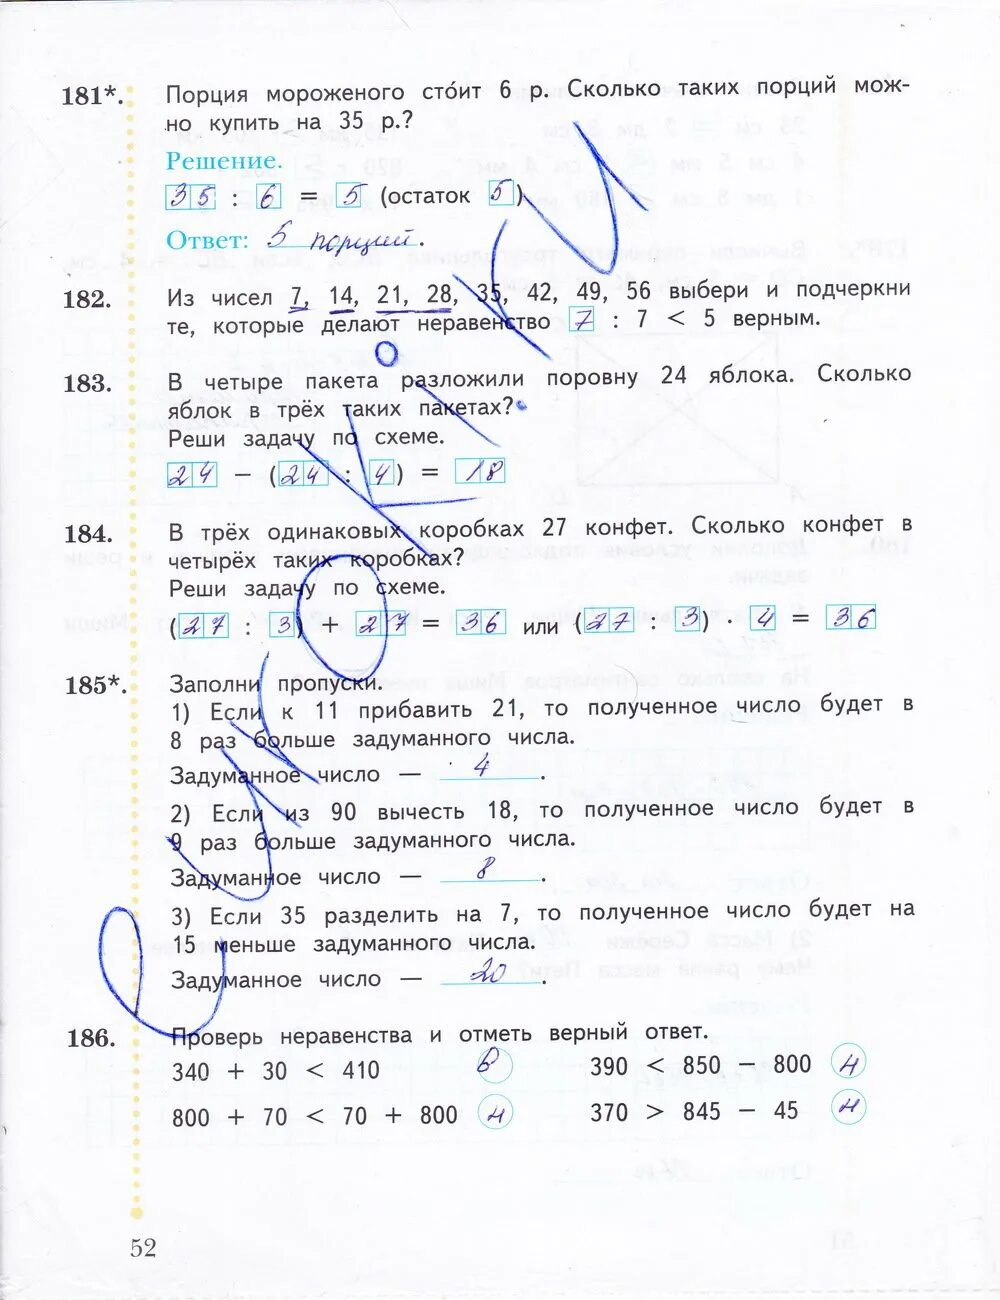 181*. Порция мороженого сто́ит 6 р. Сколько таких порций мож-
но купить на 35 р.?
Решение.
35 : 6 = 5 (остаток 5)
Ответ: 5 порций.
182. Из чисел 7, 14, 21, 28, 35, 42, 49, 56 выбери и подчеркни
те, которые делают неравенство 7 : 7 < 5 верным.
183. В четыре пакета разложили поровну 24 яблока. Сколько
яблок в трёх таких пакетах?
Реши задачу по схеме.
24 − (24 : 4) = 18
184. В трёх одинаковых коробках 27 конфет. Сколько конфет в
четырёх таких коробках?
Реши задачу по схеме.
(27 : 3) + 27 = 36 или (27 : 3) · 4 = 36
185*. Заполни пропуски.
1) Если к 11 прибавить 21, то полученное число будет в
8 раз больше задуманного числа.
Задуманное число — 4.
2) Если из 90 вычесть 18, то полученное число будет в
9 раз больше задуманного числа.
Задуманное число — 8.
3) Если 35 разделить на 7, то полученное число будет на
15 меньше задуманного числа.
Задуманное число — 20.
186. Проверь неравенства и отметь верный ответ.
340 + 30 < 410 в 390 < 850 − 800 н
800 + 70 < 70 + 800 н 370 > 845 − 45 н
52